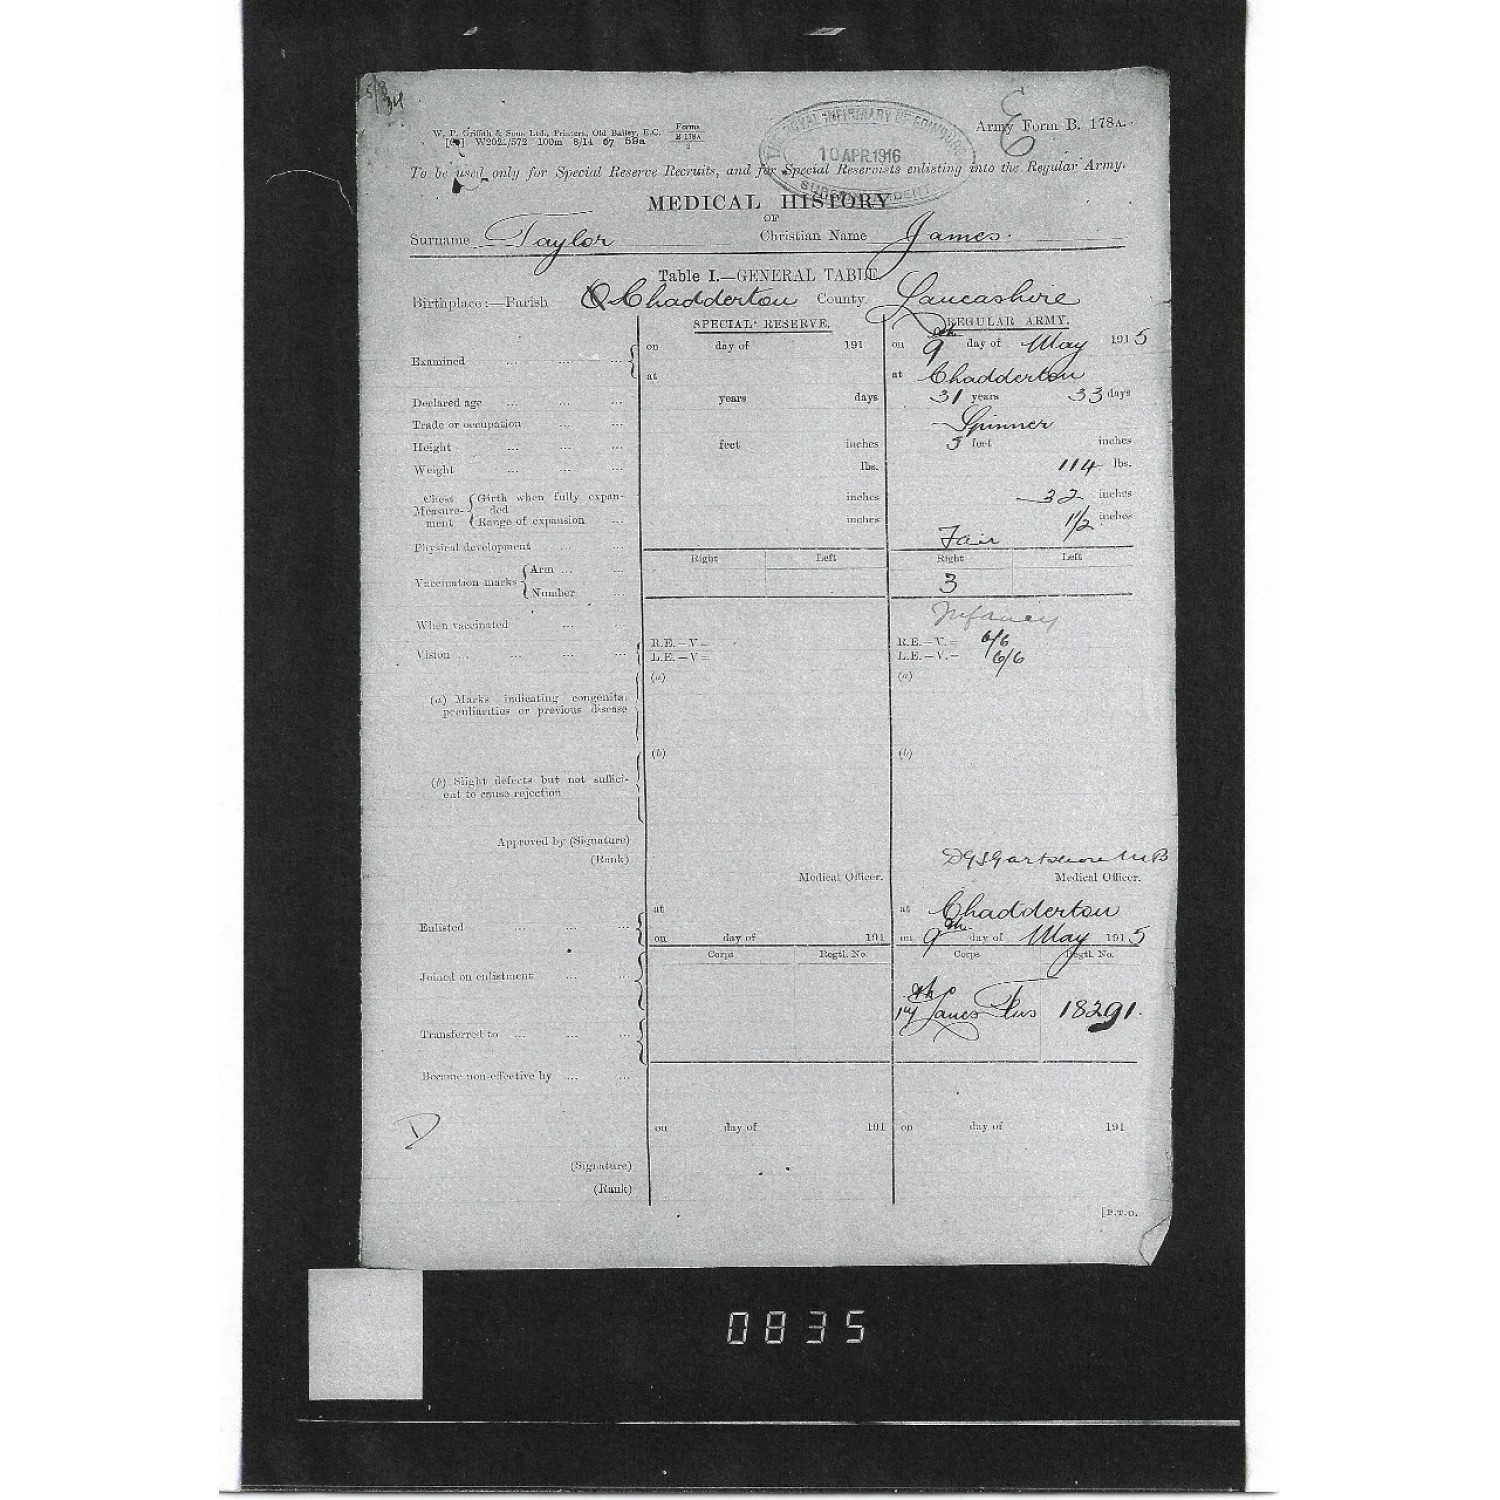 W. P. Griffith & Sons Ltd., Printers, Old Bailey, E.C. Forms B 178A 2
W202./572 100m 8/14 67 59a
THE ROYAL INFIRMARY OF EDINBURGH
10 APR 1916
SUPERINTENDENT
Army Form B. 178A.
To be used only for Special Reserve Recruits, and for Special Reservists enlisting into the Regular Army.
MEDICAL HISTORY
OF
Surname Taylor Christian Name James.
Table I.—GENERAL TABLE.
Birthplace:—Parish Chadderton County Lancashire
SPECIAL RESERVE. REGULAR ARMY.
Examined ... ... ... on day of 191 on 9th day of May 1915
at at Chadderton
Declared age ... ... ... years days 31 years 33 days
Trade or occupation ... ... Spinner
Height ... ... ... feet inches 5 feet inches
Weight ... ... ... lbs. 114 lbs.
Chest Measurement { Girth when fully expanded inches 32 inches
Range of expansion ... inches 1½ inches
Physical development ... ... Fair
Right Left Right Left
Vaccination marks { Arm ... ...
Number ... 3
When vaccinated ... ... Infancy
Vision ... ... ... ... R.E.—V= R.E.—V.= 6/6
L.E.—V= L.E.—V.= 6/6
(a) Marks indicating congenital peculiarities or previous disease (a) (a)
(b) Slight defects but not sufficient to cause rejection (b) (b)
Approved by (Signature)
(Rank) M B
Medical Officer. Medical Officer.
Enlisted ... ... ... at at Chadderton
on day of 191 on 9th day of May 1915
Corps Regtl. No. Corps Regtl. No.
Joined on enlistment ... ... 17th Lancs Fus 18291.
Transferred to ... ... ...
Became non-effective by ... ...
D
on day of 191 on day of 191
(Signature)
(Rank)
[P.T.O.
0835